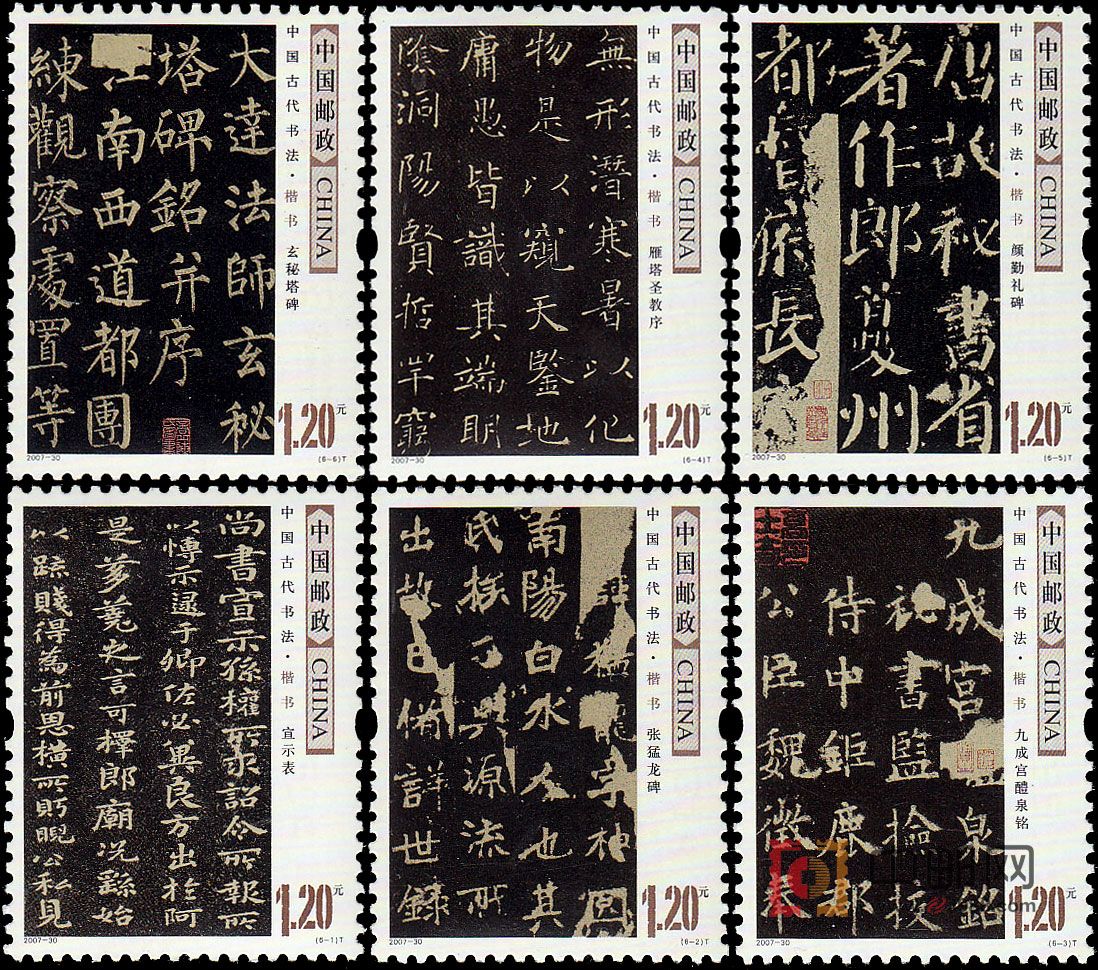 中国邮政 CHINA
中国古代书法·楷书 玄秘塔碑
大達法師玄秘
塔碑銘并序
江南西道都團
練觀察處置等
1.20元
2007-30
(6-6)T
中国邮政 CHINA
中国古代书法·楷书 雁塔圣教序
無形潛寒暑以化
物是以窺天鑒地
庸愚皆識其端明
陰洞陽賢哲罕窮
1.20元
2007-30
(6-4)T
中国邮政 CHINA
中国古代书法·楷书 颜勤礼碑
唐故秘書省
著作郎夔州
都督府長史
1.20元
2007-30
(6-5)T
中国邮政 CHINA
中国古代书法·楷书 宣示表
尚書宣示孫權所求詔令所報所
以博示逮于卿佐必冀良方出於阿
是芻蕘之言可擇郎廟況繇始
以疏賤得為前恩橫所盻睨公私見
1.20元
2007-30
(6-1)T
中国邮政 CHINA
中国古代书法·楷书 张猛龙碑
諱猛龍字神囧
南陽白水人也其
氏族分興源流所
出故已備詳世錄
1.20元
2007-30
(6-2)T
中国邮政 CHINA
中国古代书法·楷书 九成宫醴泉铭
九成宮醴泉銘
秘書監撿挍
侍中鉅鹿郡
公臣魏徵奉
1.20元
2007-30
(6-3)T